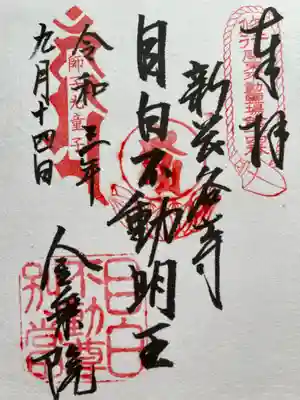 奉拝
新長谷寺
目白不動明王
金乗院
令和三年
九月十四日
師子光童子
目白
不動尊
別當